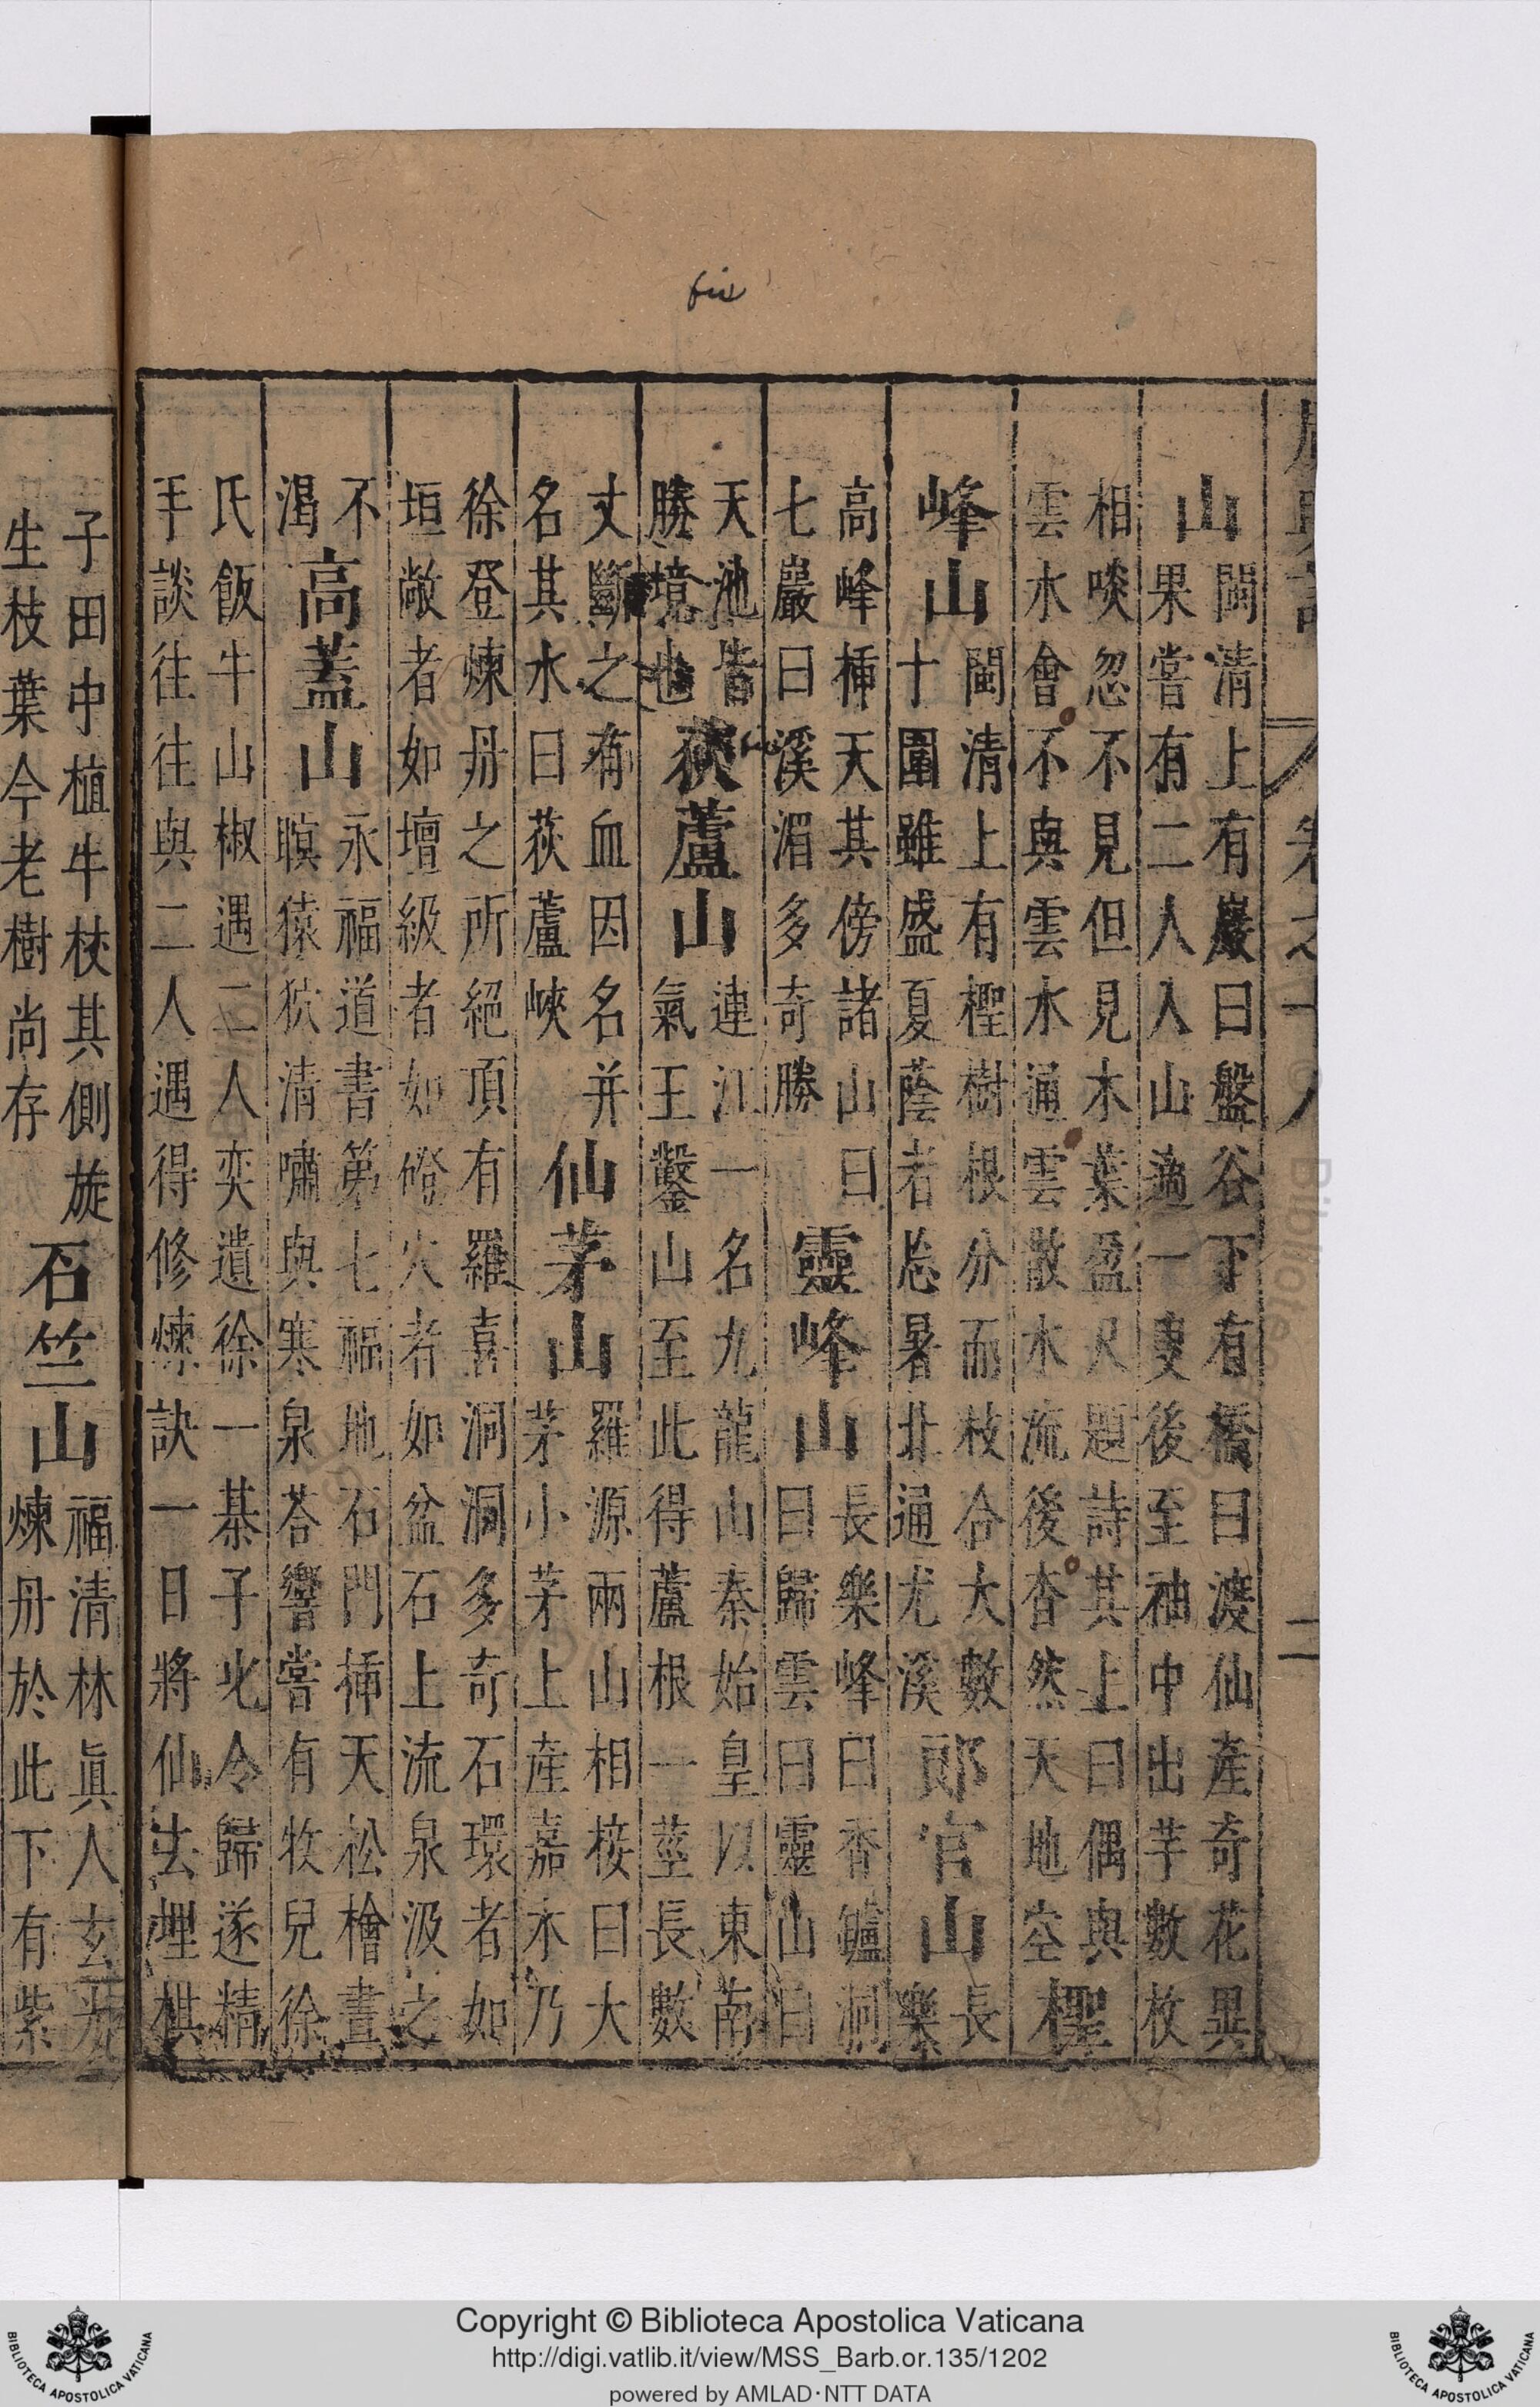 fis
卷之十八
二
山
閩清上有巖曰盤谷下有橋曰渡仙產奇花異
果嘗有二人入山適一叟後至袖中出芋數枚
相啖忽不見但見木葉盈尺題詩其上曰偶與
雲水會不與雲水通雲散水流後杳然天地空
檉
峰山
閩清上有檉樹根分而枝合大數
十圍雖盛夏蔭者忘暑北通尤溪
郎官山
長
樂
高峰揷天其傍諸山曰
七巖曰溪湄多奇勝
靈峰山
長樂峰曰香鑪洞
曰歸雲曰靈山曰
天池皆
勝境也
荻蘆山
連江一名九龍山秦始皇以東南
氣王鑿山至此得蘆根一莖長數
丈斷之有血因名并
名其水曰荻蘆峽
仙茅山
羅源兩山相接曰大
茅小茅上產嘉木乃
徐登煉丹之所絕頂有羅喜洞洞多奇石環者如
垣敞者如壇級者如磴火者如盆石上流泉汲之
不
渴
高蓋山
永福道書第七福地石門揷天松檜晝
暝猿狖清嘯與寒泉荅響嘗有牧兒徐
氏飯牛山椒遇二人奕遺徐一棊子叱令歸遂精
手談往往與二人遇得修煉訣一日將仙去埋棋
子田中植牛杖其側旋
生枝葉今老樹尚存
石竺山
福清林眞人玄光
煉丹於此下有紫
Copyright © Biblioteca Apostolica Vaticana
http://digi.vatlib.it/view/MSS_Barb.or.135/1202
powered by AMLAD·NTT DATA
BIBLIOTECA APOSTOLICA VATICANA
BIBLIOTECA APOSTOLICA VATICANA